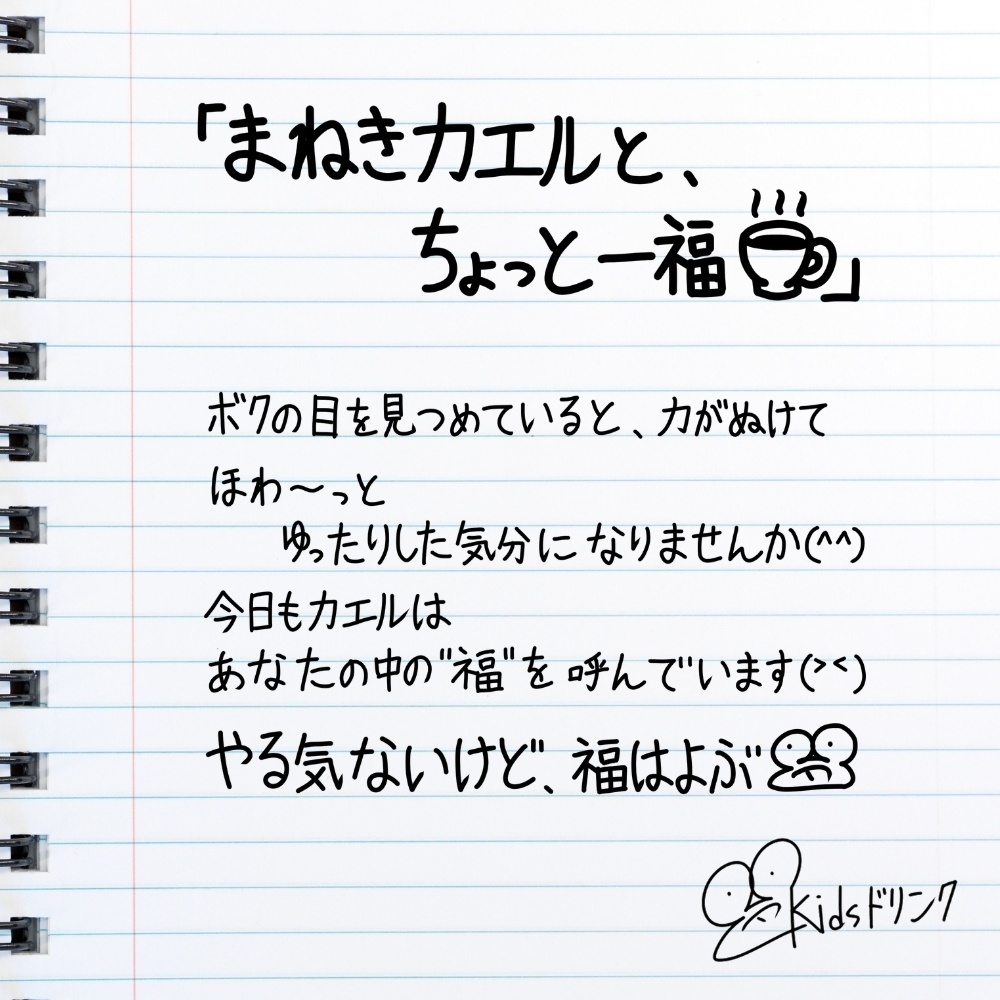 「まねきカエルと、
ちょっと一福」
ボクの目を見つめていると、力がぬけて
ほわ～っと
ゆったりした気分になりませんか(^^)
今日もカエルは
あなたの中の"福"を呼んでいます(><)
やる気ないけど、福はよぶ
Kidsドリンク